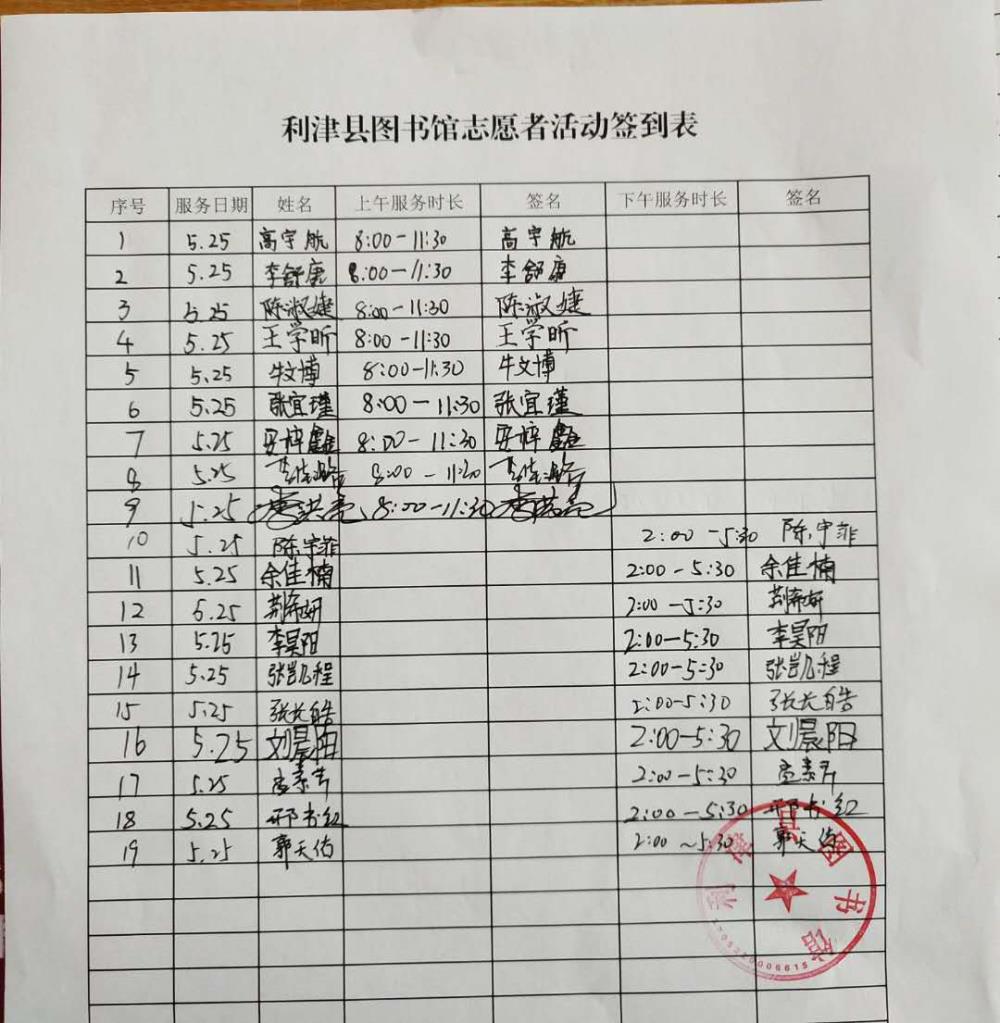 利津县图书馆志愿者活动签到表
序号 服务日期 姓名 上午服务时长 签名 下午服务时长 签名
1 5.25 高宇航 8:00-11:30 高宇航
2 5.25 李舒康 8:00-11:30 李舒康
3 5.25 陈淑婕 8:00-11:30 陈淑婕
4 5.25 王学昕 8:00-11:30 王学昕
5 5.25 牛文博 8:00-11:30 牛文博
6 5.25 张宜瑾 8:00-11:30 张宜瑾
7 5.25 8:00-11:30
8 5.25 8:00-11:20
9 5.25 8:00-11:30
10 5.25 陈宇菲 2:00-5:30 陈宇菲
11 5.25 余佳楠 2:00-5:30 余佳楠
12 5.25 2:00-5:30
13 5.25 李昊阳 2:00-5:30 李昊阳
14 5.25 张凯程 2:00-5:30 张凯程
15 5.25 张长皓 2:00-5:30 张长皓
16 5.25 刘晨阳 2:00-5:30 刘晨阳
17 5.25 2:00-5:30
18 5.25 邢书红 2:00-5:30 邢书红
19 5.25 郭天佑 2:00~5:30 郭天佑
利津县图书馆